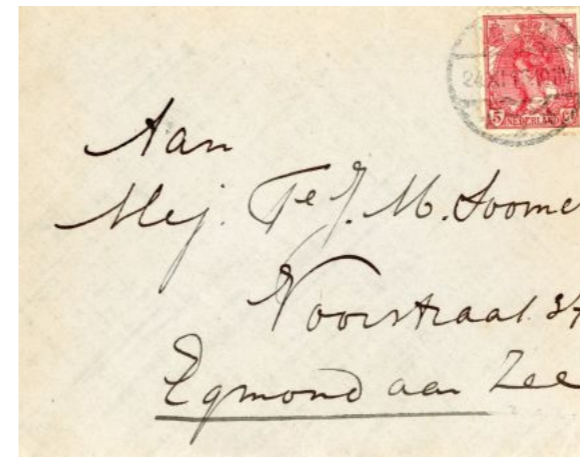 24 XI
5 NEDERLAND
Aan
Mej. Te J. M. Soomer
Voorstraat 37
Egmond aan Zee